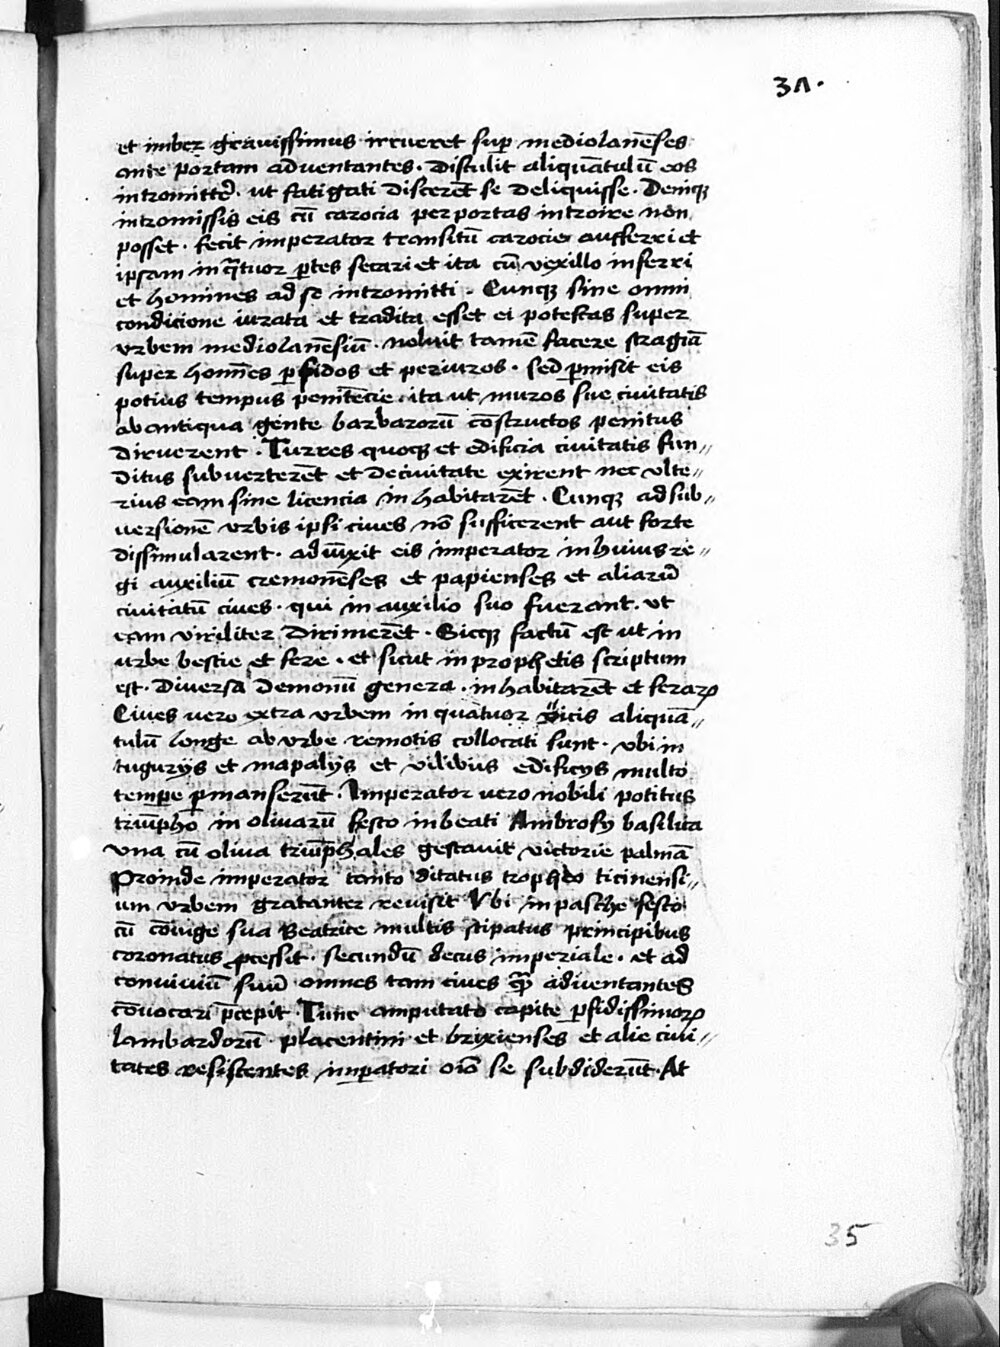 3Λ.
et imber grauissimus irrueret sup̲ mediolanēses
ante portam aduentantes . Distulit aliquātulū eos
intromittẽ . ut fatigati discerēt se deliquisse . Deniqꝫ
intromissis eis cū carocia per portas introire non
posset . fecit imperator transitū carocie aufferri et
ipsam in q̄tuor ꝑtes secari et ita cū vexillo inferri
et homines ad se intromitti . Cunqꝫ sine omni
condicione iurata et tradita esset ei potestas super
urbem mediolanēsiū . noluit tamē facere stragiā
super hom̄es ꝑfidos et periuros . sed ꝑmisit eis
potius tempus penitēcie . ita ut muros sue ciuitatis
ab antiqua gente barbarorū cōstructos penitus
diruerent . Turres quoqꝫ et edificia ciuitatis fun〃
ditus subuerterēt et de ciuitate exirent nec vlte〃
rius eam sine licencia inhabitarēt . Cunqꝫ ad sub〃
uersionē urbis ipsi ciues nō sufficerent aut forte
dissimularent . adiūxit eis imperator in huius re〃
gi auxiliū cremonēses et papienses et aliarū
ciuitatū ciues . qui in auxilio suo fuerant . ut
eam viriliter dirimerēt . Sicqꝫ factū est ut in
urbe bestie et fere . et sicut in prophetis scriptum
est . diuersa demonū genera . inhabitarēt et feraꝝ
Ciues vero extra urbem in quatuor vicis aliquā〃
tulū longe ab urbe remotis collocati sunt . vbi in
tugurijs et mapalijs et vilibus edificijs multo
tempe ꝑmanserūt . Imperator vero nobili potitus
triūpho in oliuarū festo in beati Ambrosij basilica
vna cū oliua triūphales gestauit victorie palmā
Proinde imperator tanto ditatus tropheo ticinensi〃
um urbem gratanter reuisit Vbi in pasche festo
cū cōiuge sua Beatrice multis stipatus principibus
coronatus ꝓcessit . secundū decus imperiale . et ad
conuiuiū suū omnes tam ciues qꝫ̄ aduentantes
cōuocari p̄cepit . Tunc amputato capite ꝑfidissimoꝝ
lambardorū . placentini et brixienses et alie ciui〃
tates resistentes imꝑatori oīo se subdiderūt . At
35